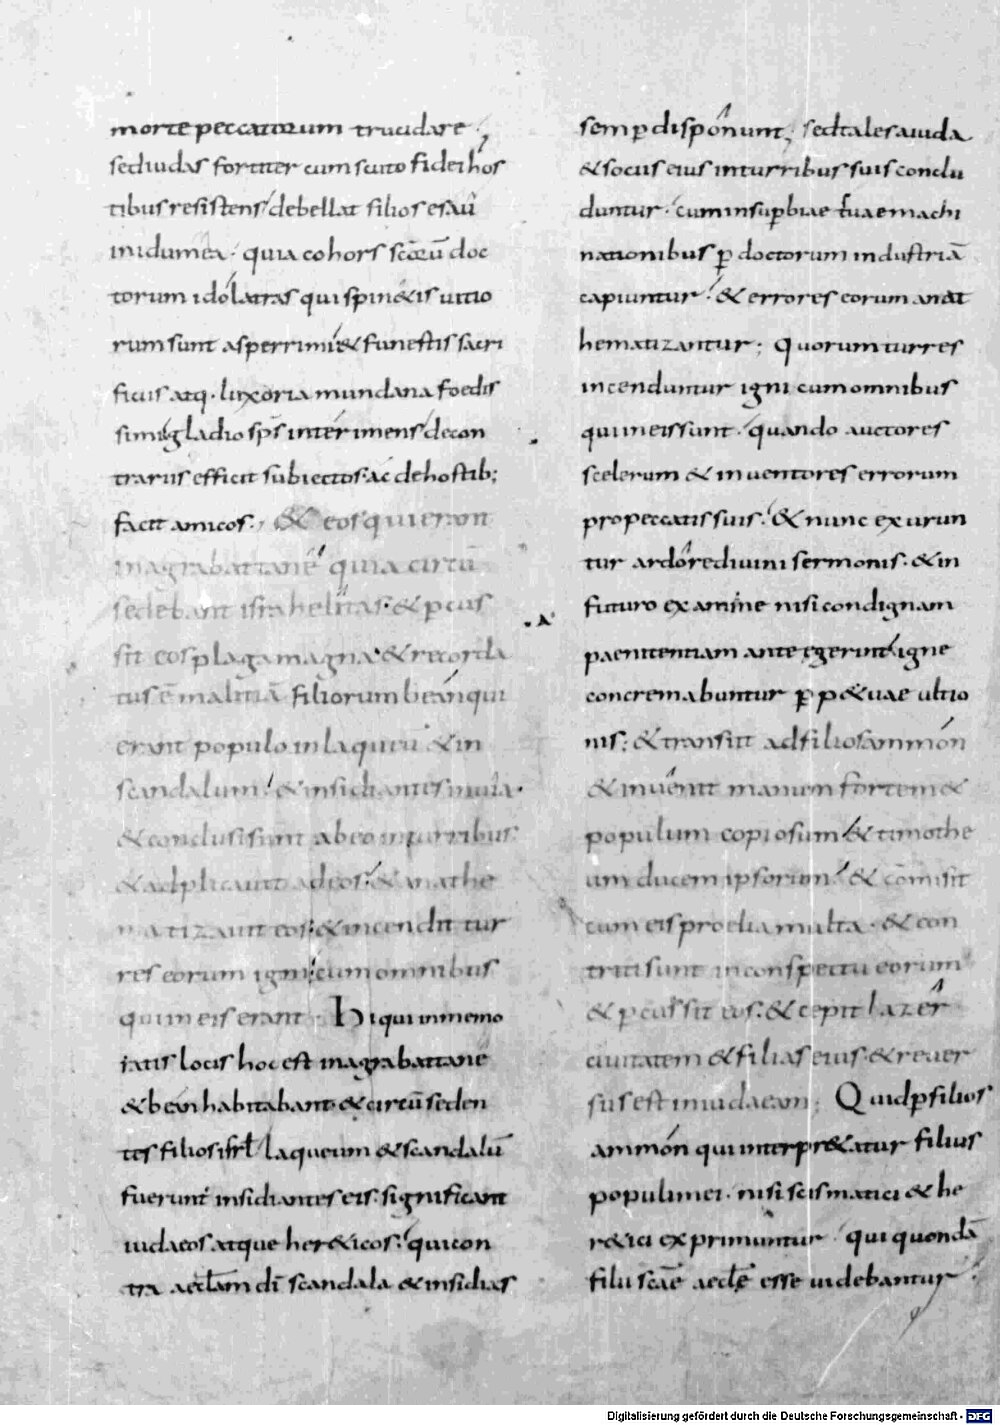 morte peccatorum trucidare;
sed iudas fortiter cum scuto fidei hos
tibus resistens debellat filios esaû
in idumea· quia cohors scōrū doc
torum idólatras qui spin&is uitio
rum sunt asperrimi & funestis sacri
ficiis atq· luxoria mundana foedis
simi gladio sp̄s interimens de con
trariis efficit subiectos· ac de hostib;
facit amicos· & eos qui erant
in agrabattane quia circū
sedebant israhelitas· & p̱cus
sit eos plaga magna· & recorda
tus ē malitiā filiorum beán qui
erant populo in laqueū & in
scandalum & insidiantes in uia·
& conclusi sunt ab eo in turribus
& adplicauit ad eos & anathe
matizauit eos· & incendit tur
res eorum igni cum omnibus
qui in eis erant· Hi qui in memo
ratis locis hoc est in agrabattane
& beán habitabant & circū seden
tes filios isrł laqueum & scandalū
fuerunt insidiantes eis· significant
iudaeos atque her&icos· qui con
tra aeclam di scandala & insidias
semp̱ dispônunt; sed tales a iuda
& sociis eius in turribus suis conclu
duntur· cum in sup̱biae suae machi
nationibus p̱ doctorum industriā
capiuntur· & errores eorum anat
hematizantur; Quorum turres
incenduntur igni cum omnibus
qui in eis sunt· quando auctores
scelerum & inuentores errorum
pro peccatis suis· & nunc exurun
tur ardôre diuini sermonis· & in
futuro examine nisi condignam
paenitentiam ante egerint igne
concremabuntur p̱p&uae ultio
nis; & transiit ad filios ammón
& inuênit manum fortem &
populum copiosum & timothe
um ducem ipsorum & cōmisit
cum eis proelia multa· & con
triti sunt in conspectu eorum
& p̱cussit eos· & cepit lazêr
ciuitatem & filias eius· & reuer
sus est in iudaeam; Quid p̱ filios
ammón qui interpr&atur filius
populi mei· nisi scismatici & he
r&ici exprimuntur qui quondā
filii scāe aeclae esse uidebantur
Digitalisierung gefördert durch die Deutsche Forschungsgemeinschaft - DFG